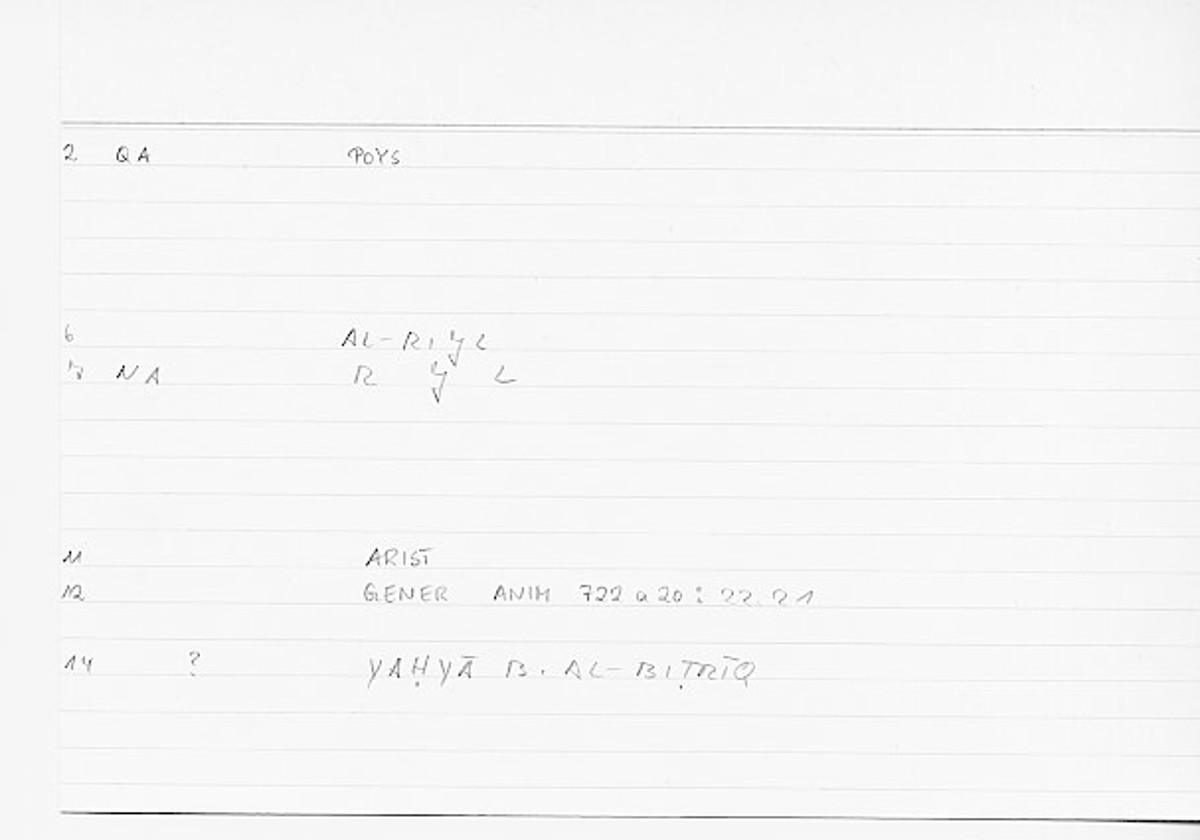 2 QA POYS
6 AL-RIǦL
7 NA R Ǧ L
11 ARIST
12 GENER ANIM 722 a 20 : 22.21
14 ? YAḤYĀ B. AL-BIṬRĪQ